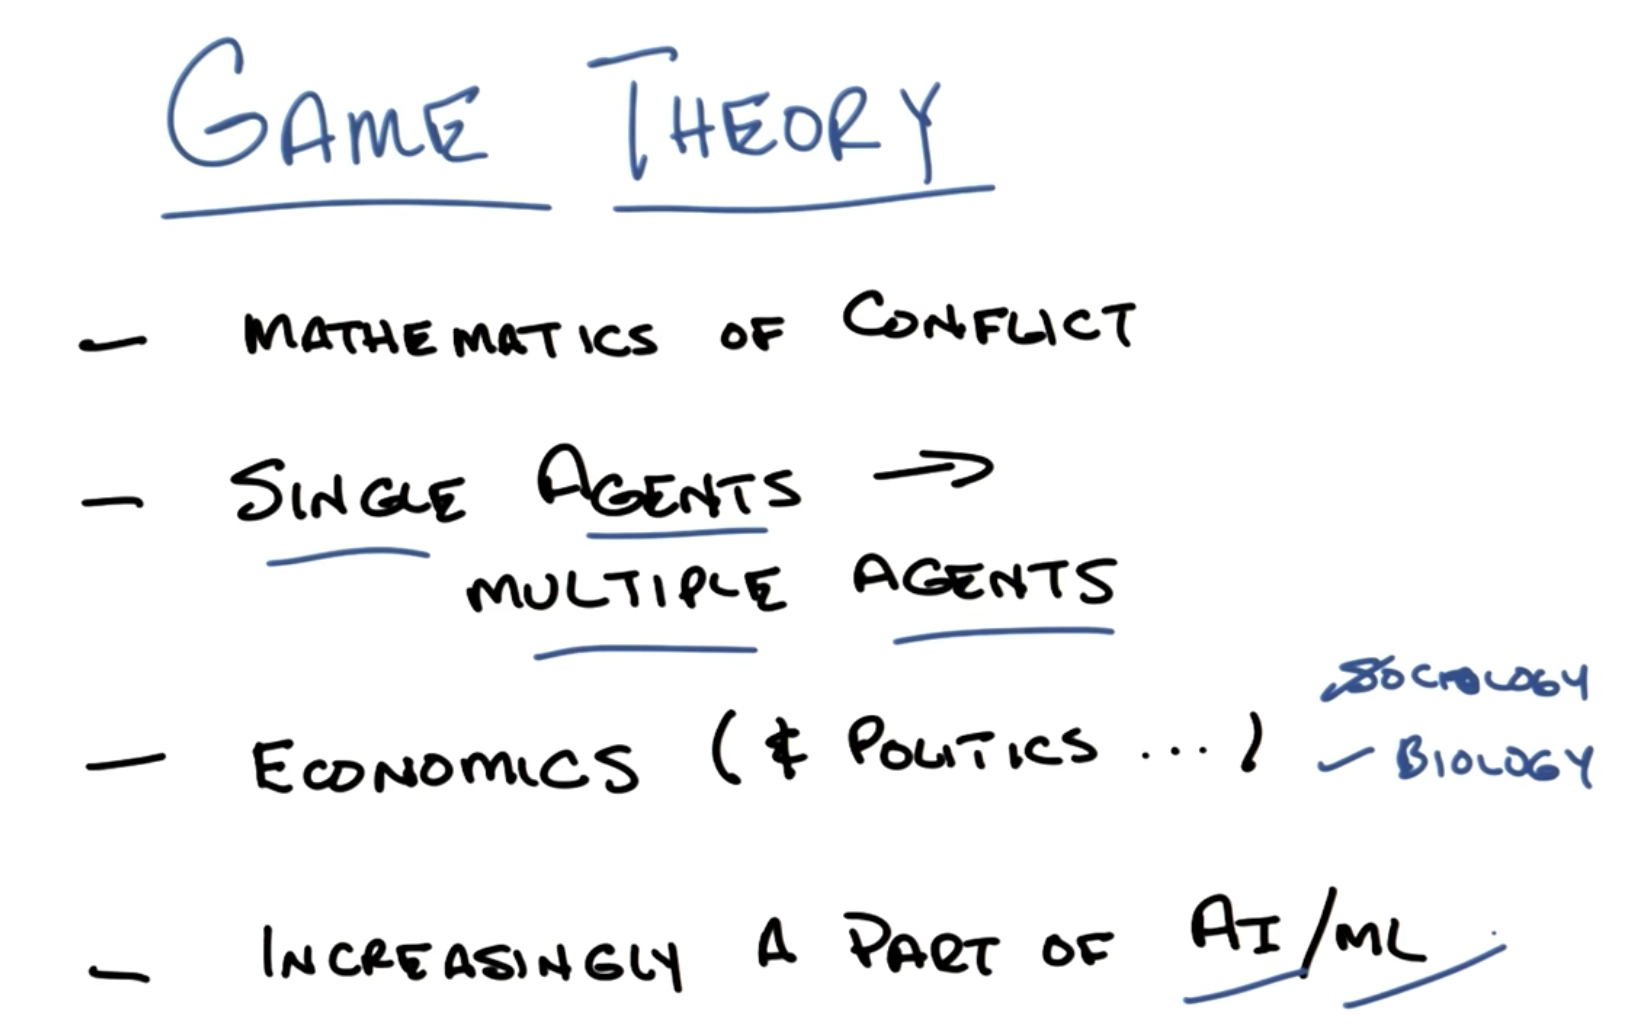 GAME THEORY
- MATHEMATICS OF CONFLICT
- SINGLE AGENTS →
MULTIPLE AGENTS
SOCIOLOGY
- ECONOMICS (& POLITICS ...)
BIOLOGY
- INCREASINGLY A PART OF AI/ML